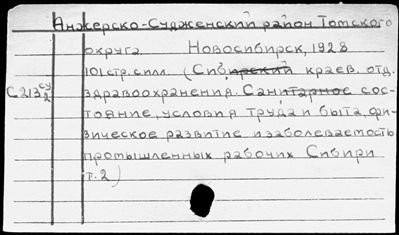 Анжерско-Судженский район Томского
округа Новосибирск, 1928
101 стр. с илл. (Сибирский краев. отд.
С 213 су/2 здравоохранения. Санитарное сос-
тояние, условия труда и быта, фи-
зическое развитие и заболеваемость
промышленных рабочих Сибири
т. 2)